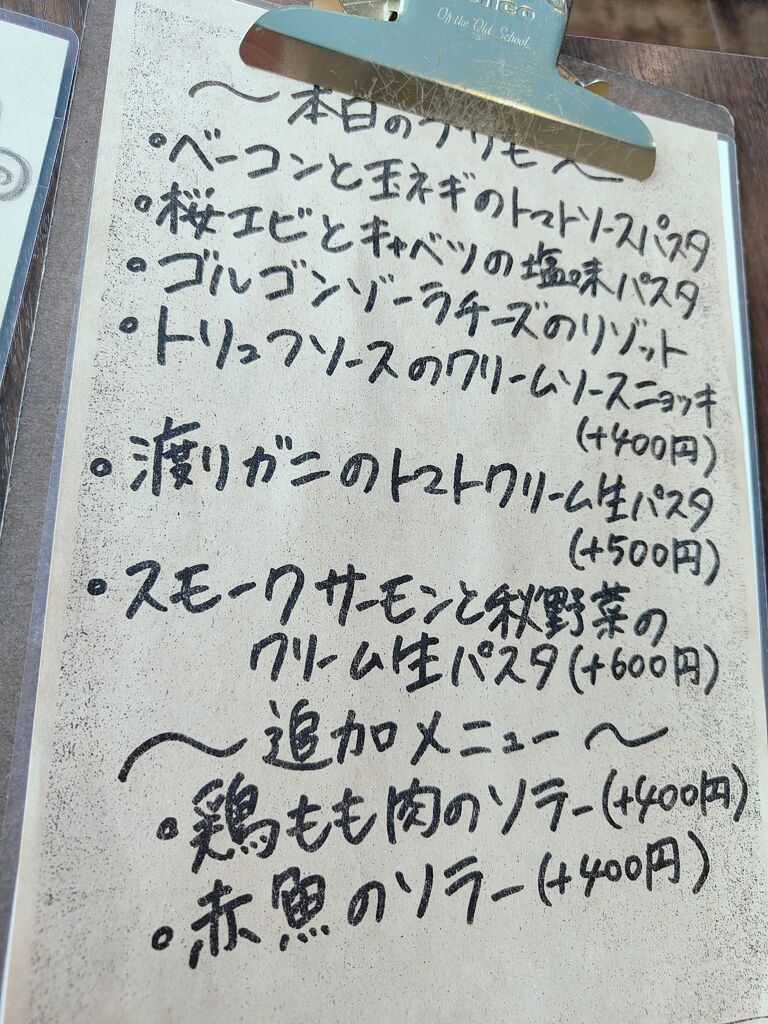 Of the Old School
～本日のプリモ～
・ベーコンと玉ネギのトマトソースパスタ
・桜エビとキャベツの塩味パスタ
・ゴルゴンゾーラチーズのリゾット
・トリュフソースのクリームソースニョッキ
(+400円)
・渡りガニのトマトクリーム生パスタ
(+500円)
・スモークサーモンと秋野菜の
クリーム生パスタ(+600円)
～追加メニュー～
・鶏もも肉のソテー(+400円)
・赤魚のソテー(+400円)